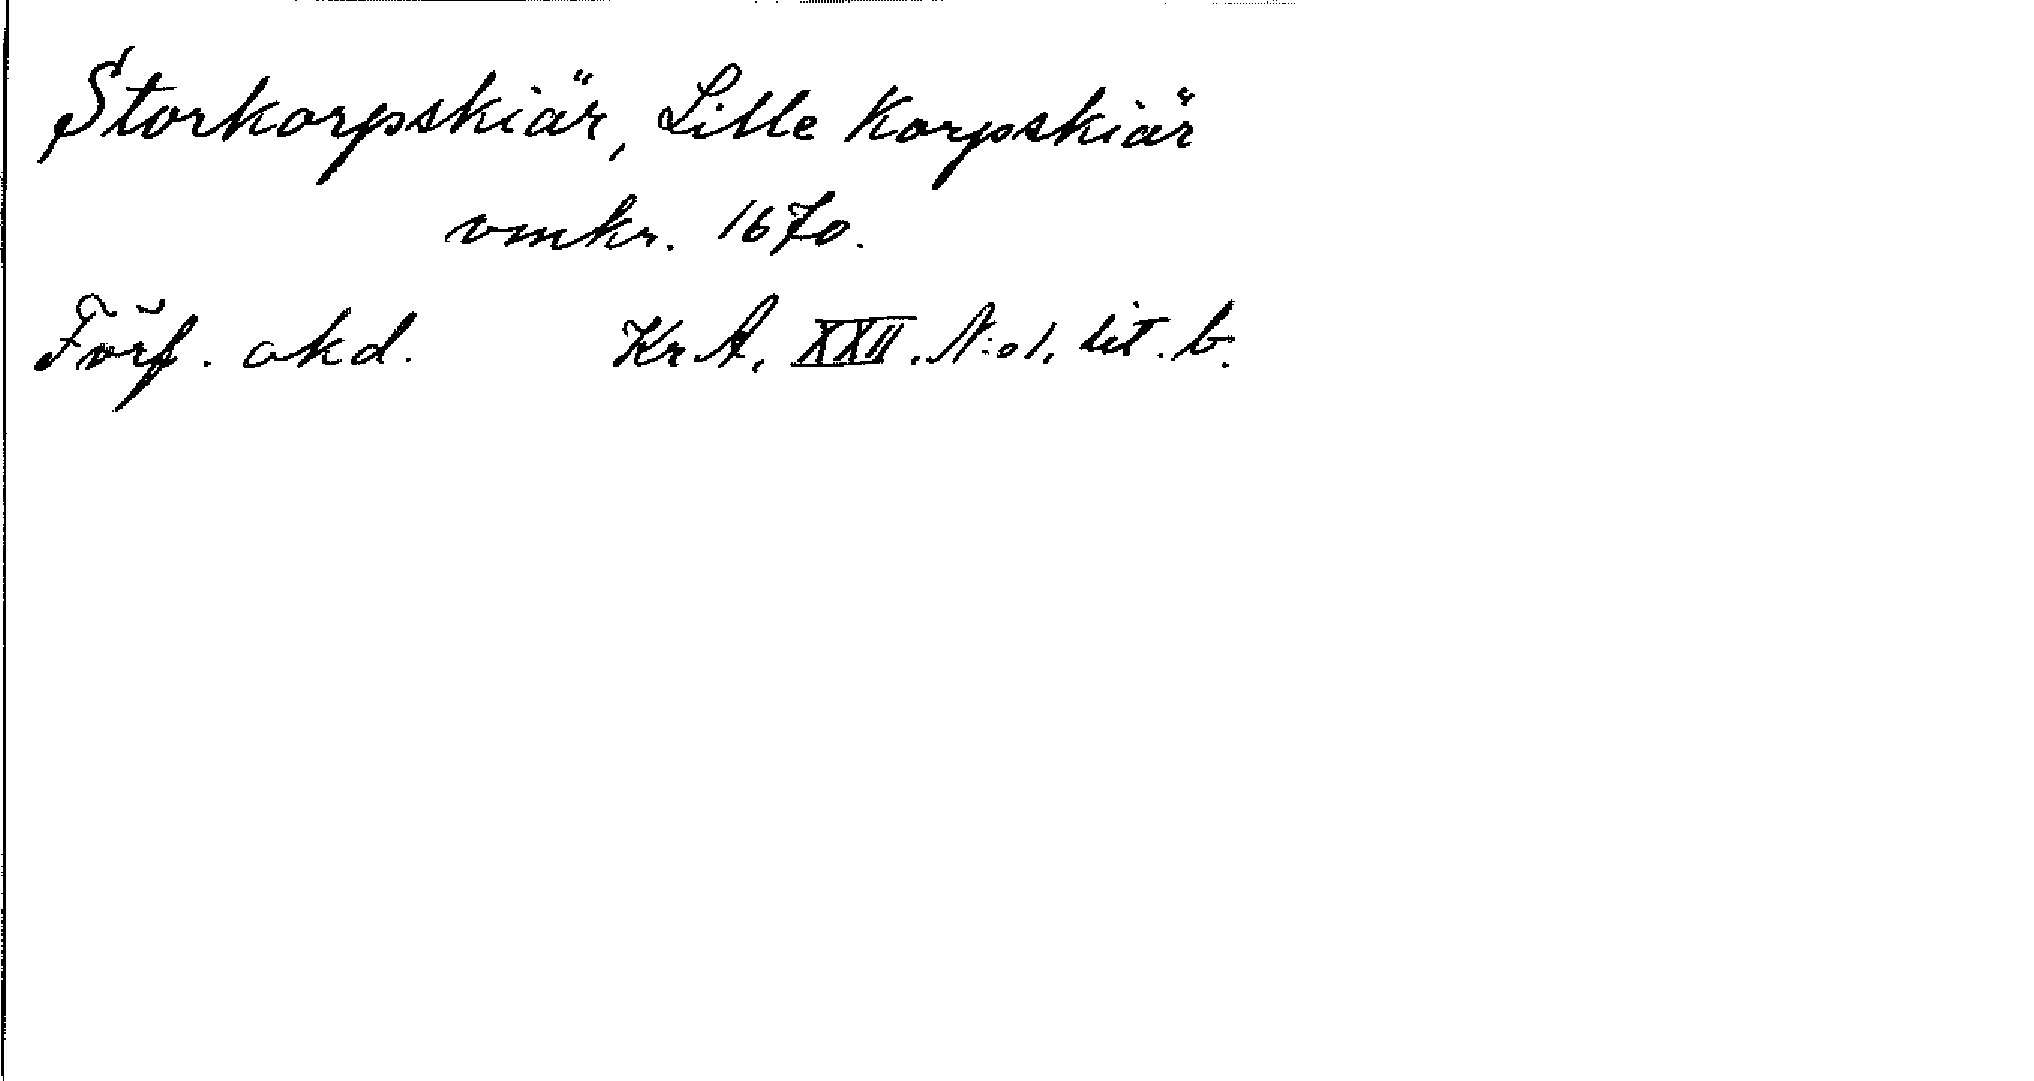 Storkorpskiär, Lille Korpskiär
omkr. 1670.
Förf. okd. KrA, XXII. N:o 1. lit. b.